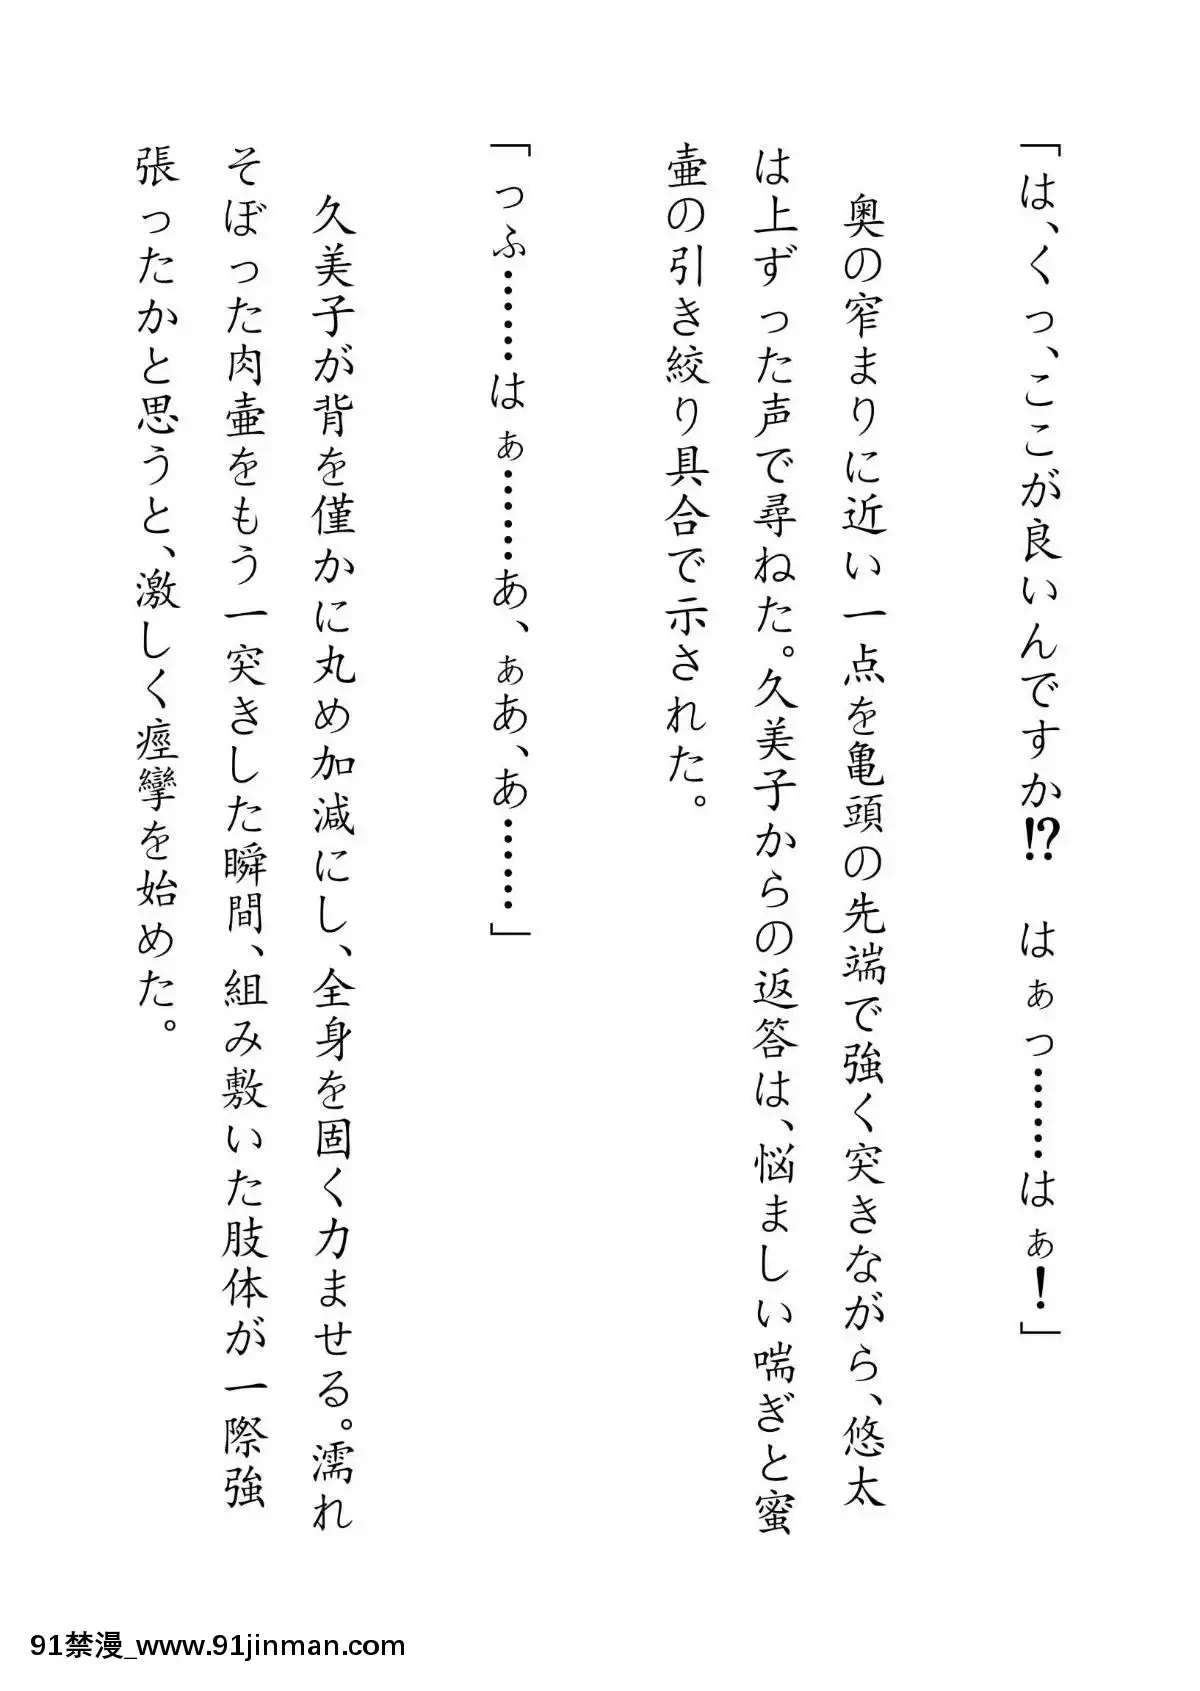 「は、くっ、ここが良いんですか⁉　はぁっ………はぁ！」
奥の窄まりに近い一点を亀頭の先端で強く突きながら、悠太
は上ずった声で尋ねた。久美子からの返答は、悩ましい喘ぎと蜜
壷の引き絞り具合で示された。
「っふ………はぁ………あ、ぁあ、あ………」
久美子が背を僅かに丸め加減にし、全身を固く力ませる。濡れ
そぼった肉壷をもう一突きした瞬間、組み敷いた肢体が一際強
張ったかと思うと、激しく痙攣を始めた。
91禁漫_www.91jinman.com